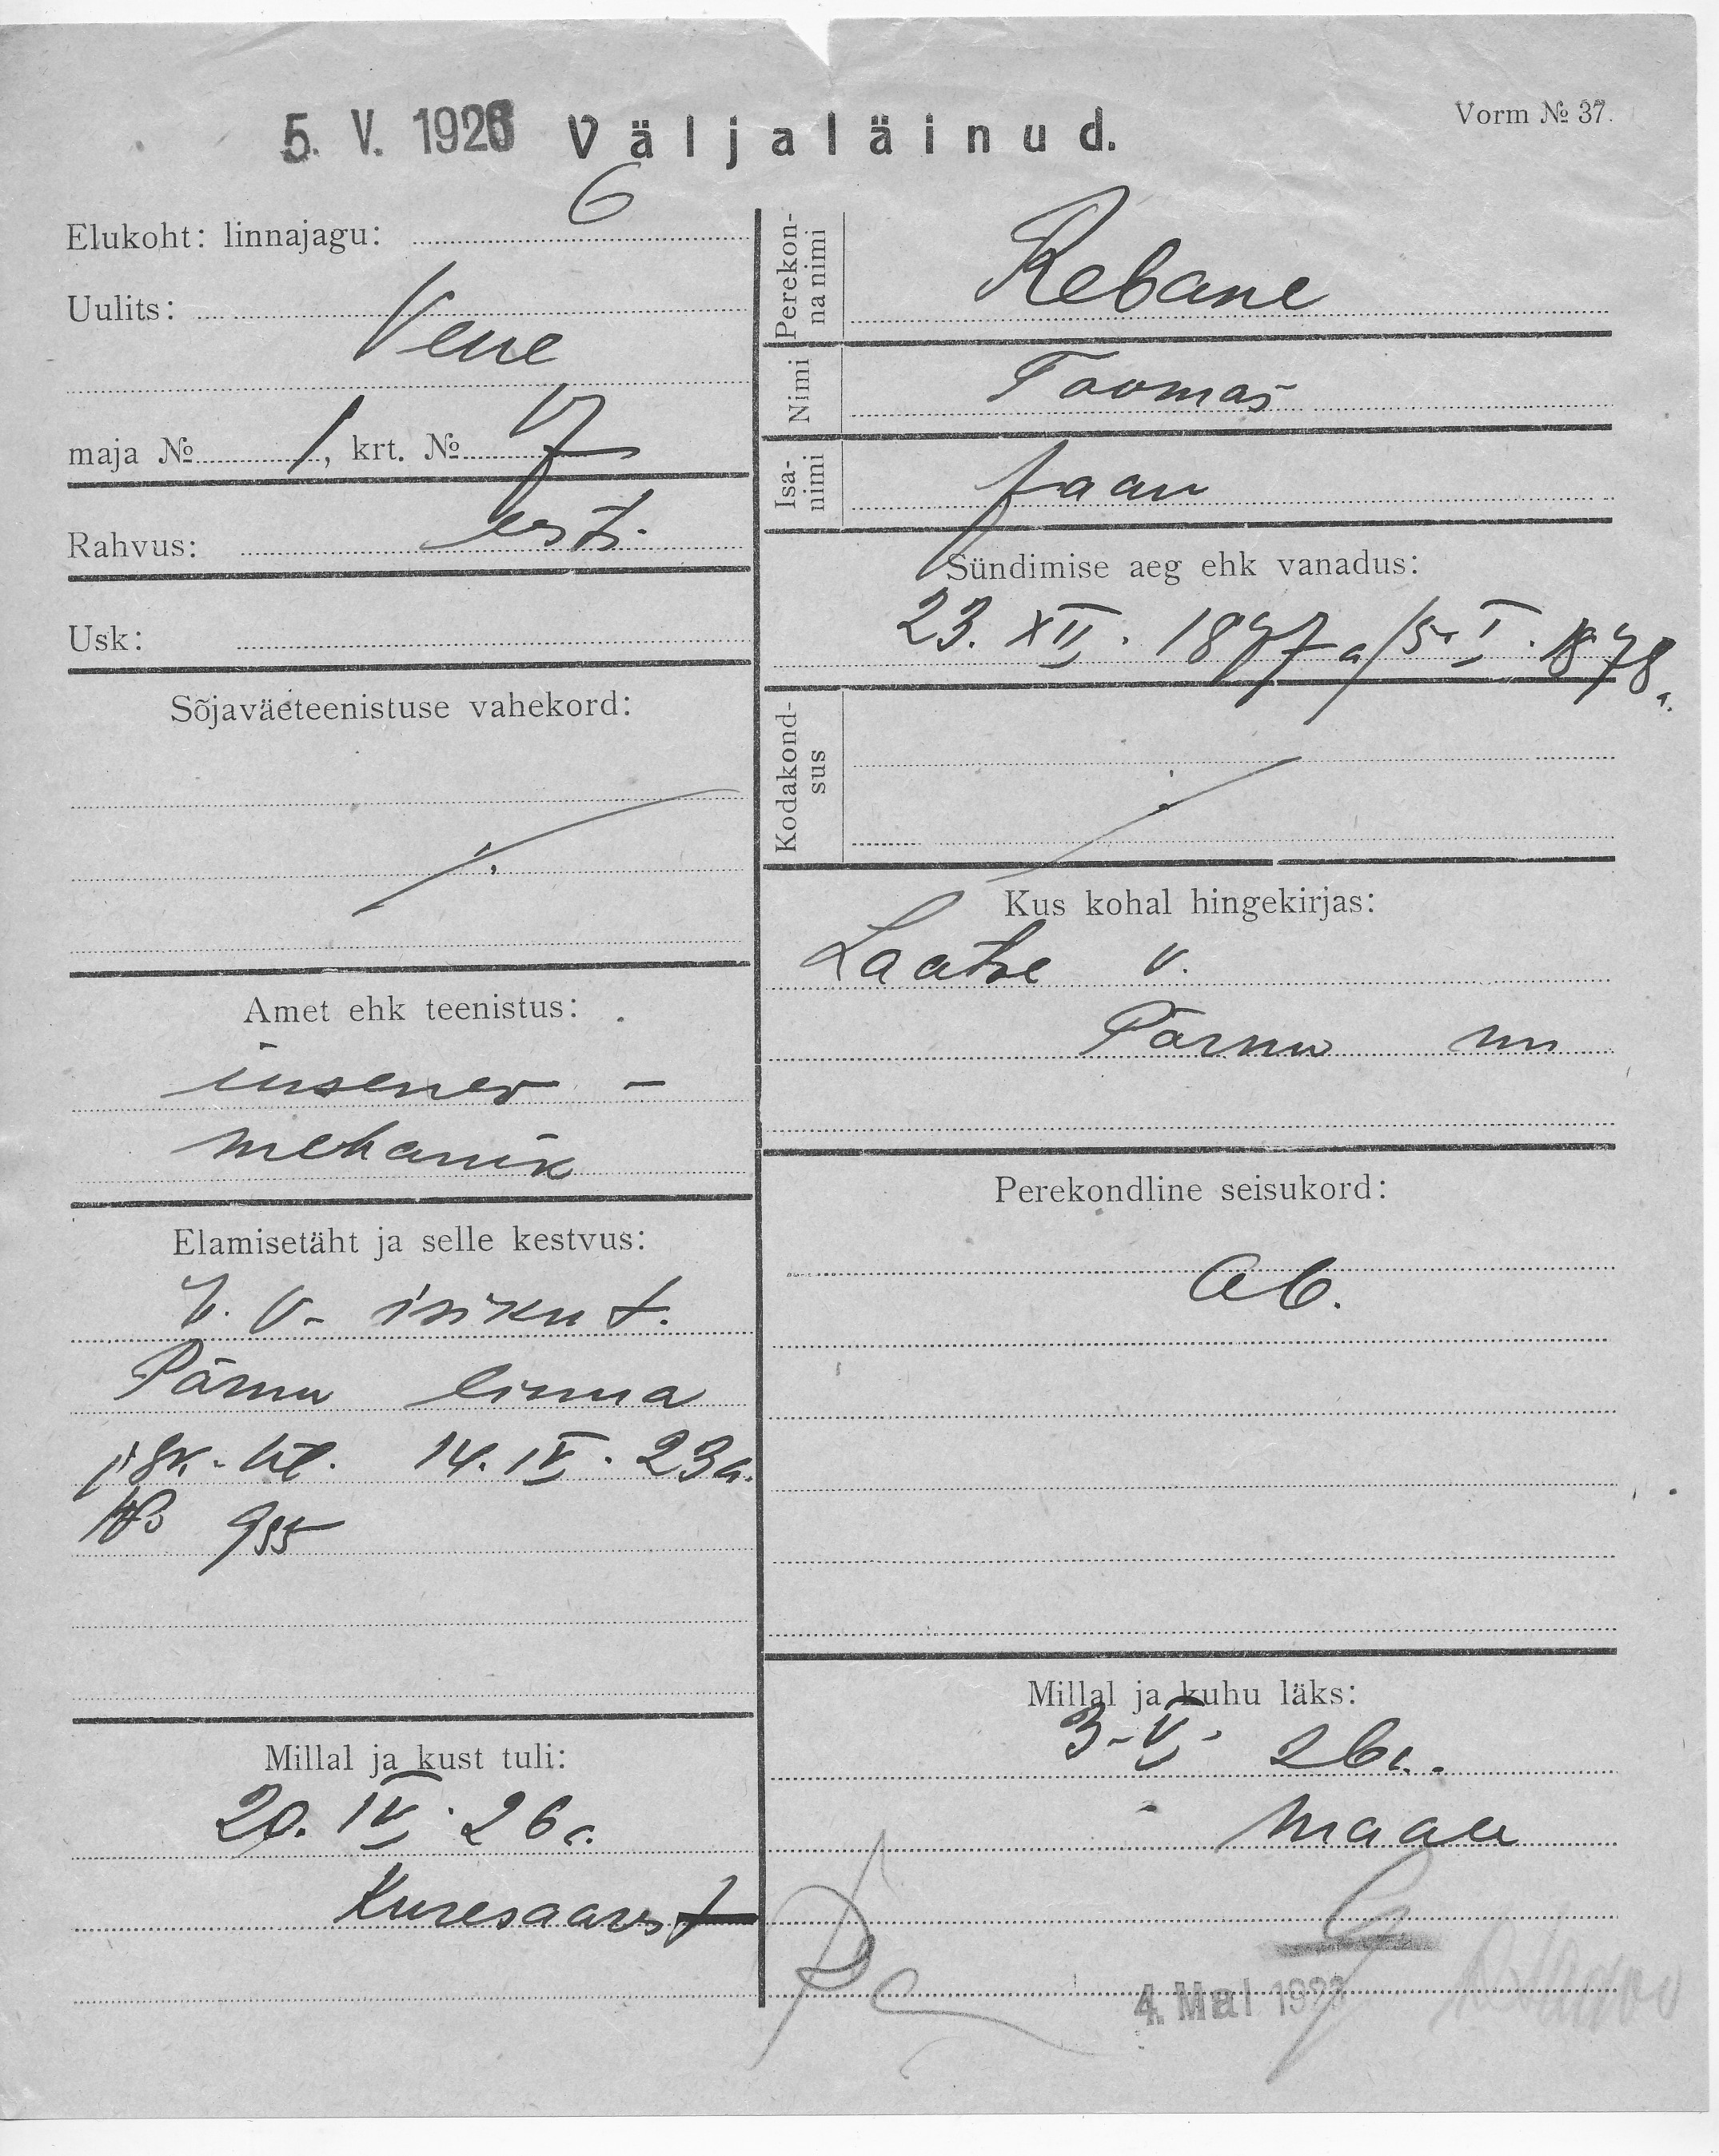 5. V. 1926 Väljaläinud.
Vorm № 37.
Elukoht: linnajagu: 6
Uulits:
Vene
maja № 1, krt. № 7
Rahvus: eesti
Usk:
Sõjaväeteenistuse vahekord:
Amet ehk teenistus:
insener -
mehanik
Elamisetäht ja selle kestvus:
E. V. isikut.
Pärnu linna
jsk. ül. 14. IV. 23 a.
№ 955
Millal ja kust tuli:
20. IV. 26 a.
Kuresaarest
Perekon-
na nimi
Rebane
Nimi
Toomas
Isa-
nimi
Jaan
Sündimise aeg ehk vanadus:
23. XII. 1877 a / 5. I. 1878 a.
Kodakond-
sus
Kus kohal hingekirjas:
Laatre v.
Pärnu m
Perekondline seisukord:
Ab.
Millal ja kuhu läks:
3. V. 26 a.
maale
4. Mai